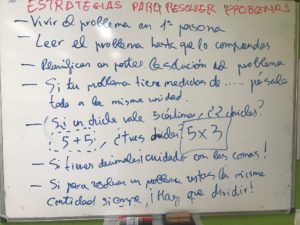 ESTRATEGIAS PARA RESOLVER PROBLEMAS
- Vivir el problema en 1ª persona
- Leer el problema hasta que lo comprendas
- Planificar un posible la solución del problema
- Si tu problema tiene medidas de .... pásalo
todo a la misma unidad.
- Si un chicle vale 5 céntimos, ¿2 chicles?
5+5. ¿tres chicles? 5x3
- Si tienes decimales ¡cuidado con las comas!
- Si para resolver un problema restas la misma
cantidad siempre ¡Hay que dividir!